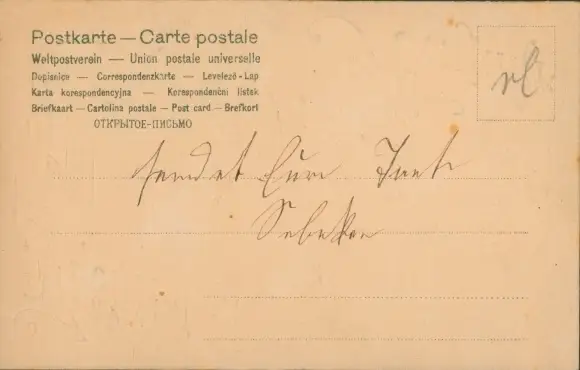 Postkarte — Carte postale
Weltpostverein — Union postale universelle
Dopisnice — Correspondenzkarte — Levelező-Lap
Karta korespondencyjna — Korespondenčni listek
Briefkaart — Cartolina postale — Post card — Brefkort
ОТКРЫТОЕ-ПИСЬМО
sendet Eure Tante